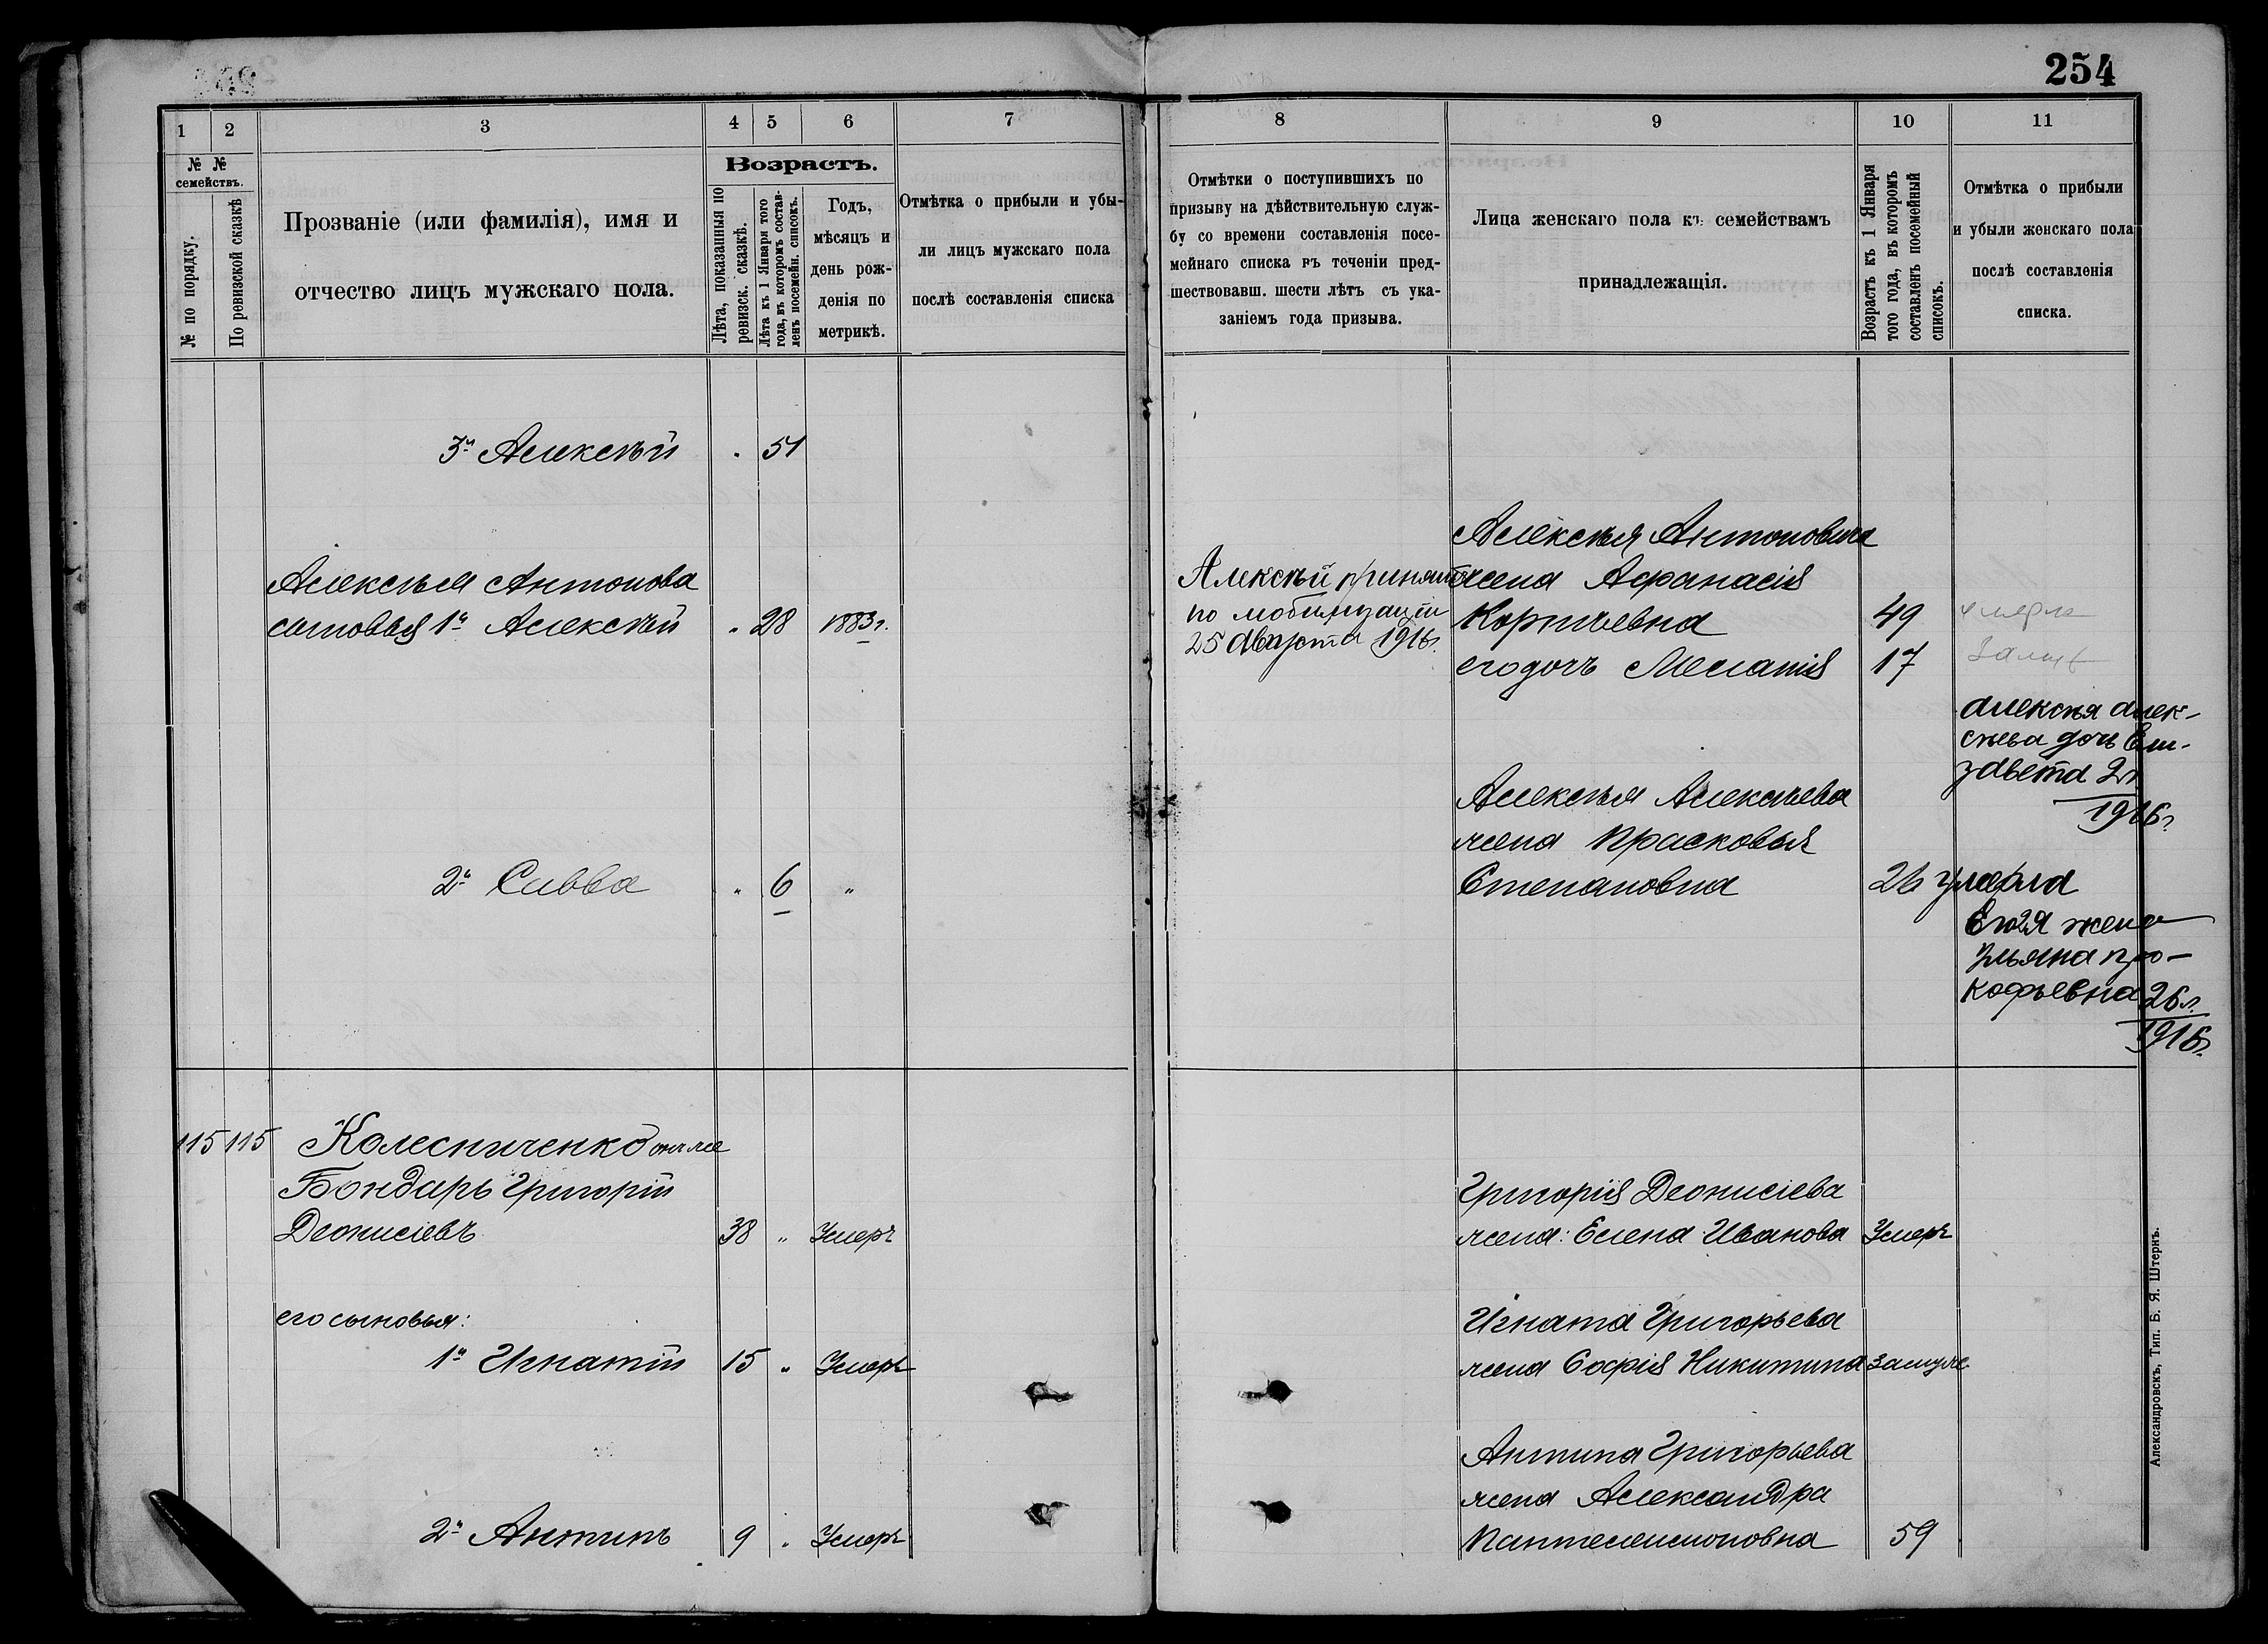 254
1 2 3 4 5 6 7
№ №
семействъ.
№ по порядку.
По ревизской сказкѣ
Прозваніе (или фамилія), имя и
отчество лицъ мужскаго пола.
Возрастъ.
Лѣта, показанныя по
ревизск. сказкѣ.
Лѣта къ 1 Января того
года, въ которомъ состав-
ленъ посемейн. списокъ.
Годъ,
мѣсяцъ и
день рож-
денія по
метрикѣ.
Отмѣтка о прибыли и убы-
ли лицъ мужскаго пола
послѣ составленія списка
3й Алексѣй " 51
Алексѣя Антонова
сыновья 1й Алексѣй " 28 1883 г.
2й Савва " 6 "
115 115 Колесниченко онъ же
Бондарь Григорій
Деонисіевъ 38 " Умеръ
его сыновья:
1й Игнатій 15 " Умеръ
2й Антипъ 9 " Умеръ
8 9 10 11
Отмѣтки о поступившихъ по
призыву на дѣйствительную служ-
бу со времени составленія посе-
мейнаго списка въ теченіи пред-
шествовавш. шести лѣтъ съ ука-
заніемъ года призыва.
Лица женскаго пола къ семействамъ
принадлежащія.
Возрастъ къ 1 Января
того года, въ которомъ
составленъ посемейный
списокъ.
Отмѣтка о прибыли
и убыли женскаго пола
послѣ составленія
списка.
Алексѣй принятъ
по мобилизаціи
25 Августа 1916 г.
Алексѣя Антоновича
жена Афанасія
Корнѣевна 49 умерла
его дочь Меланія 17 Замуж
Алексѣя Алек-
сѣева дочь Ели-
завета 2 л.
1916 г.
Алексѣя Алексѣева
жена Прасковья
Степановна 26 умерла
Его 2я жена
Ульяна Про-
кофьевна 26 л.
1916 г.
Григорія Деонисіева
жена: Елена Иванова Умерл
Игната Григорьева
жена Софія Никитина замуж.
Антипа Григорьева
жена Александра
Пантелеимоновна 59
Александровскъ, Тип. Б. Я. Штернъ.